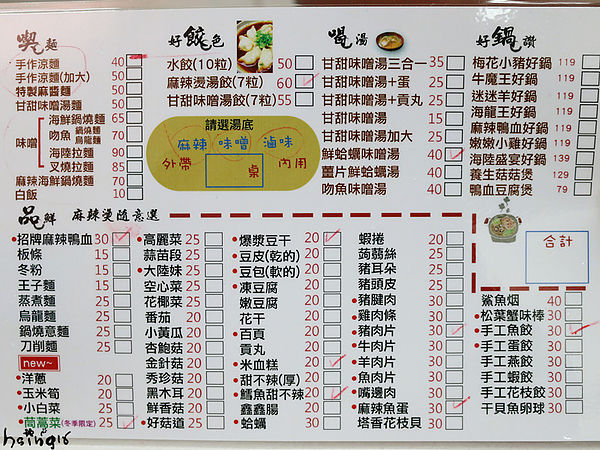 喫 麵
手作涼麵 40
手作涼麵(加大) 50
特製麻醬麵 40
甘甜味噌湯麵 40
味噌
海鮮鍋燒麵 65
吻魚 鍋燒麵 烏龍麵 70
海陸拉麵 90
叉燒拉麵 85
麻辣海鮮鍋燒麵 70
白飯 10
好 餃 色
水餃(10粒) 50
麻辣燙湯餃(7粒) 60
甘甜味噌湯餃(7粒) 55
請選湯底
麻辣 味噌 滷味
外帶 桌 內用
喝 湯
甘甜味噌湯三合一 35
甘甜味噌湯+蛋 25
甘甜味噌湯+貢丸 25
甘甜味噌湯 15
甘甜味噌湯加大 25
鮮蛤蠣味噌湯 40
薑片鮮蛤蠣湯 40
吻魚味噌湯 40
好 鍋 讚
梅花小豬好鍋 119
牛魔王好鍋 119
迷迷羊好鍋 119
海龍王好鍋 119
麻辣鴨血好鍋 119
嫩嫩小雞好鍋 119
海陸盛宴好鍋 139
養生菇菇煲 129
鴨血豆腐煲 79
品 鮮 麻辣燙隨意選
招牌麻辣鴨血 30
板條 15
冬粉 15
王子麵 15
蒸煮麵 25
烏龍麵 25
鍋燒意麵 25
刀削麵 25
new~
洋蔥 20
玉米筍 20
小白菜 25
茼蒿菜(冬季限定) 25
高麗菜 25
蒜苗段 25
大陸妹 25
空心菜 25
花椰菜 25
番茄 20
小黃瓜 20
杏鮑菇 25
金針菇 20
秀珍菇 20
黑木耳 20
鮮香菇 20
好菇道 25
爆漿豆干 20
豆皮(乾的) 20
豆包(軟的) 20
凍豆腐 20
嫩豆腐 20
花干 20
百頁 20
貢丸 20
米血糕 20
甜不辣(厚) 20
鱈魚甜不辣 20
鑫鑫腸 20
蛤蠣 30
蝦捲 20
蒟蒻絲 25
豬耳朵 25
豬頭皮 25
豬腱肉 30
雞肉條 30
豬肉片 30
牛肉片 30
羊肉片 30
魚肉片 30
嘴邊肉 30
麻辣魚蛋 30
塔香花枝貝 30
合計
鯊魚烟 40
松葉蟹味棒 30
手工魚餃 30
手工蛋餃 30
手工燕餃 30
手工蝦餃 30
手工花枝餃 30
干貝魚卵球 30